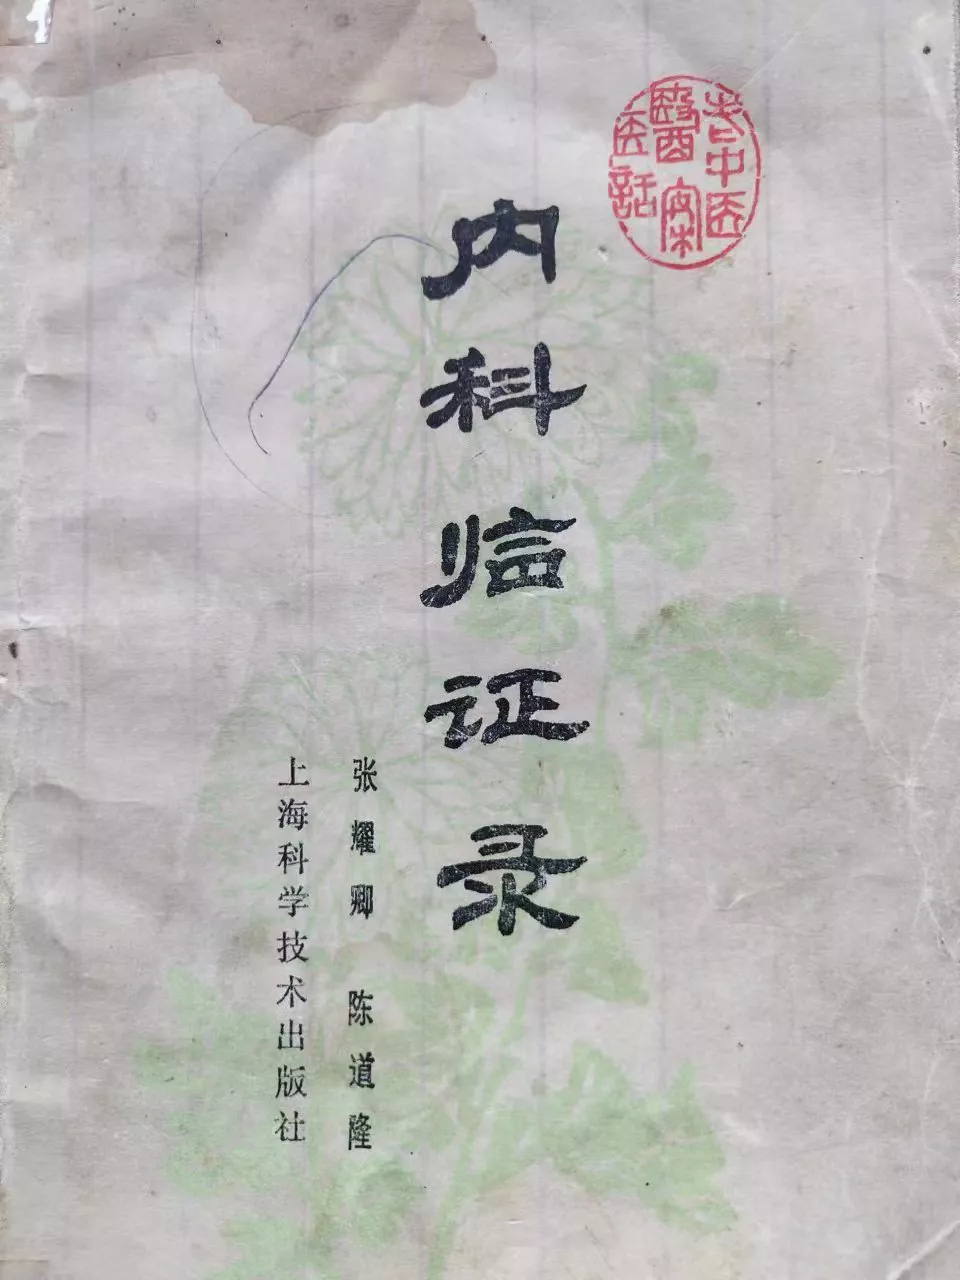 老中医
醫案
医話
内科临证录
张耀卿 陈道隆
上海科学技术出版社